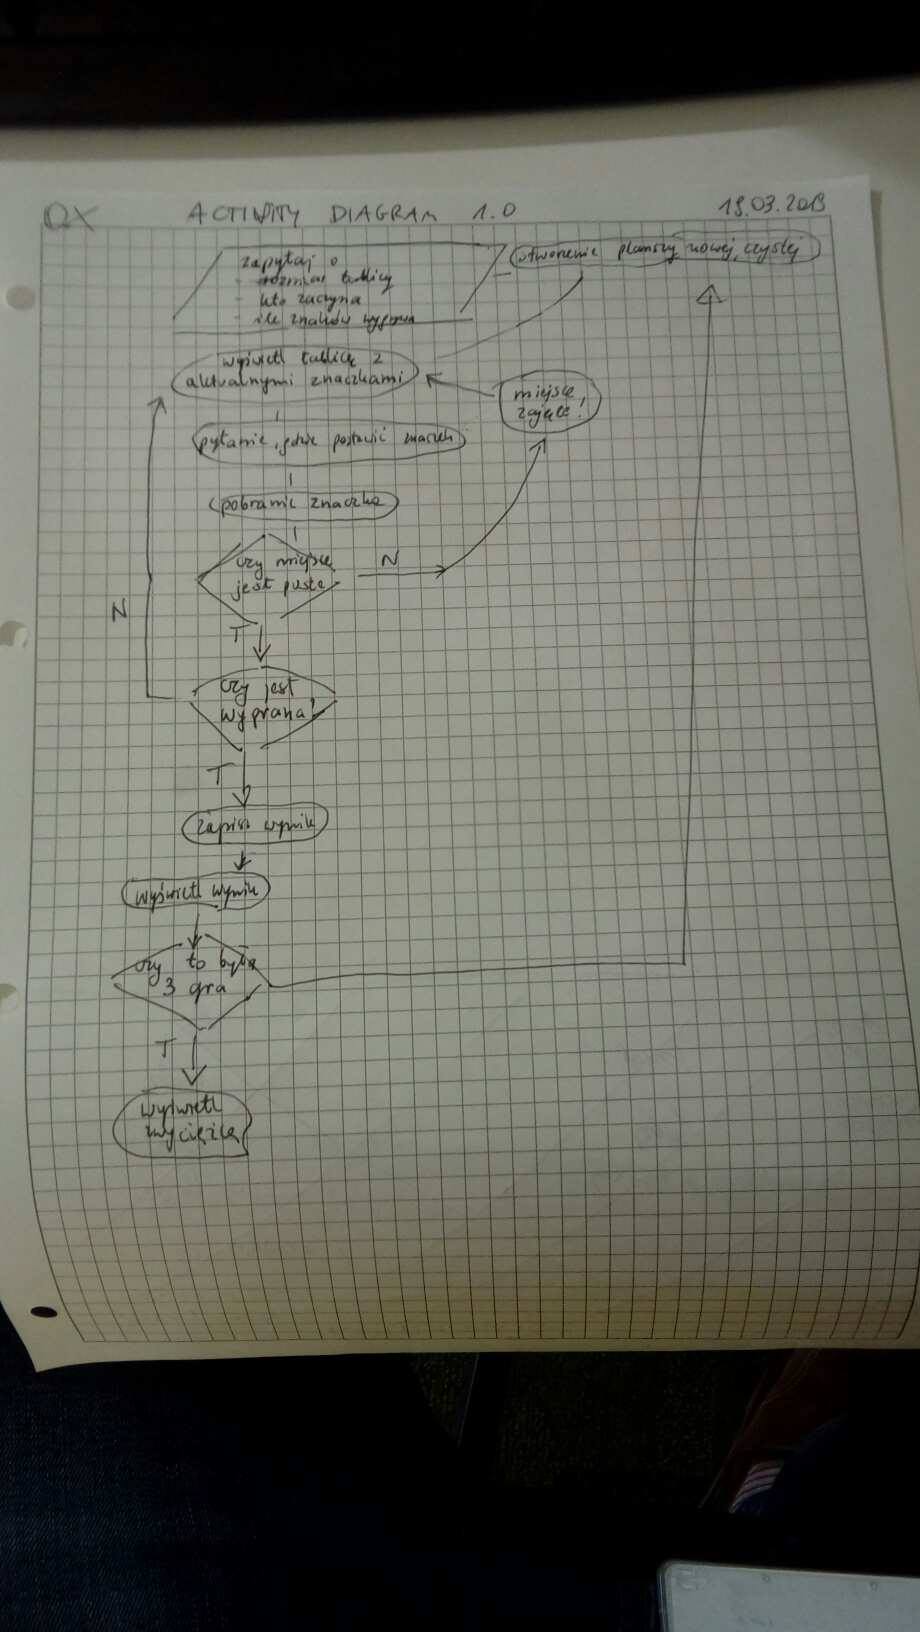 OX ACTIVITY DIAGRAM 1.0 19.03.2019
zapytaj o
- rozmiar tablicy
- kto zaczyna
- ile znaków wygrywa
utworzenie planszy nowej, czystej
wyświetl tablicę z
aktualnymi znaczkami
miejsce
zajęte!
pytanie, gdzie postawić znaczek
pobranie znaczka
czy miejsce
jest puste
N
T
N
czy jest
wygrana?
T
zapisz wynik
wyświetl wynik
czy to była
3 gra
T
wyświetl
zwycięzcę